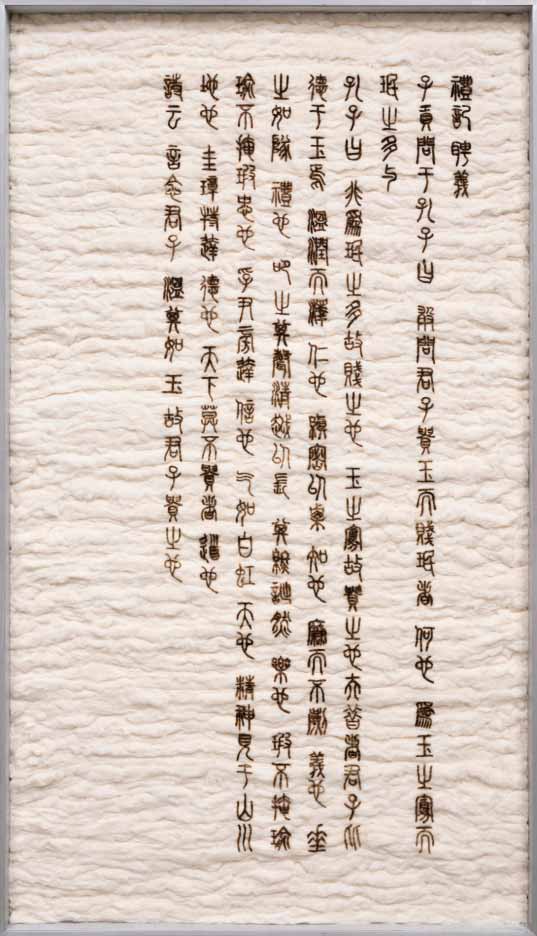 禮記 聘義
子貢問于孔子曰 敢問君子貴玉而賤珉者 何也 為玉之寡而
珉之多与
孔子曰 非為珉之多故賤之也 玉之寡故貴之也 夫昔者君子比
德于玉焉 溫潤而澤 仁也 縝密以栗 知也 廉而不劌 義也 垂
之如隊 禮也 叩之其聲清越以長 其終詘然 樂也 瑕不揜瑜
瑜不揜瑕 忠也 孚尹旁達 信也 气如白虹 天也 精神見于山川
地也 圭璋特達 德也 天下莫不貴者 道也
詩云 言念君子 溫其如玉 故君子貴之也